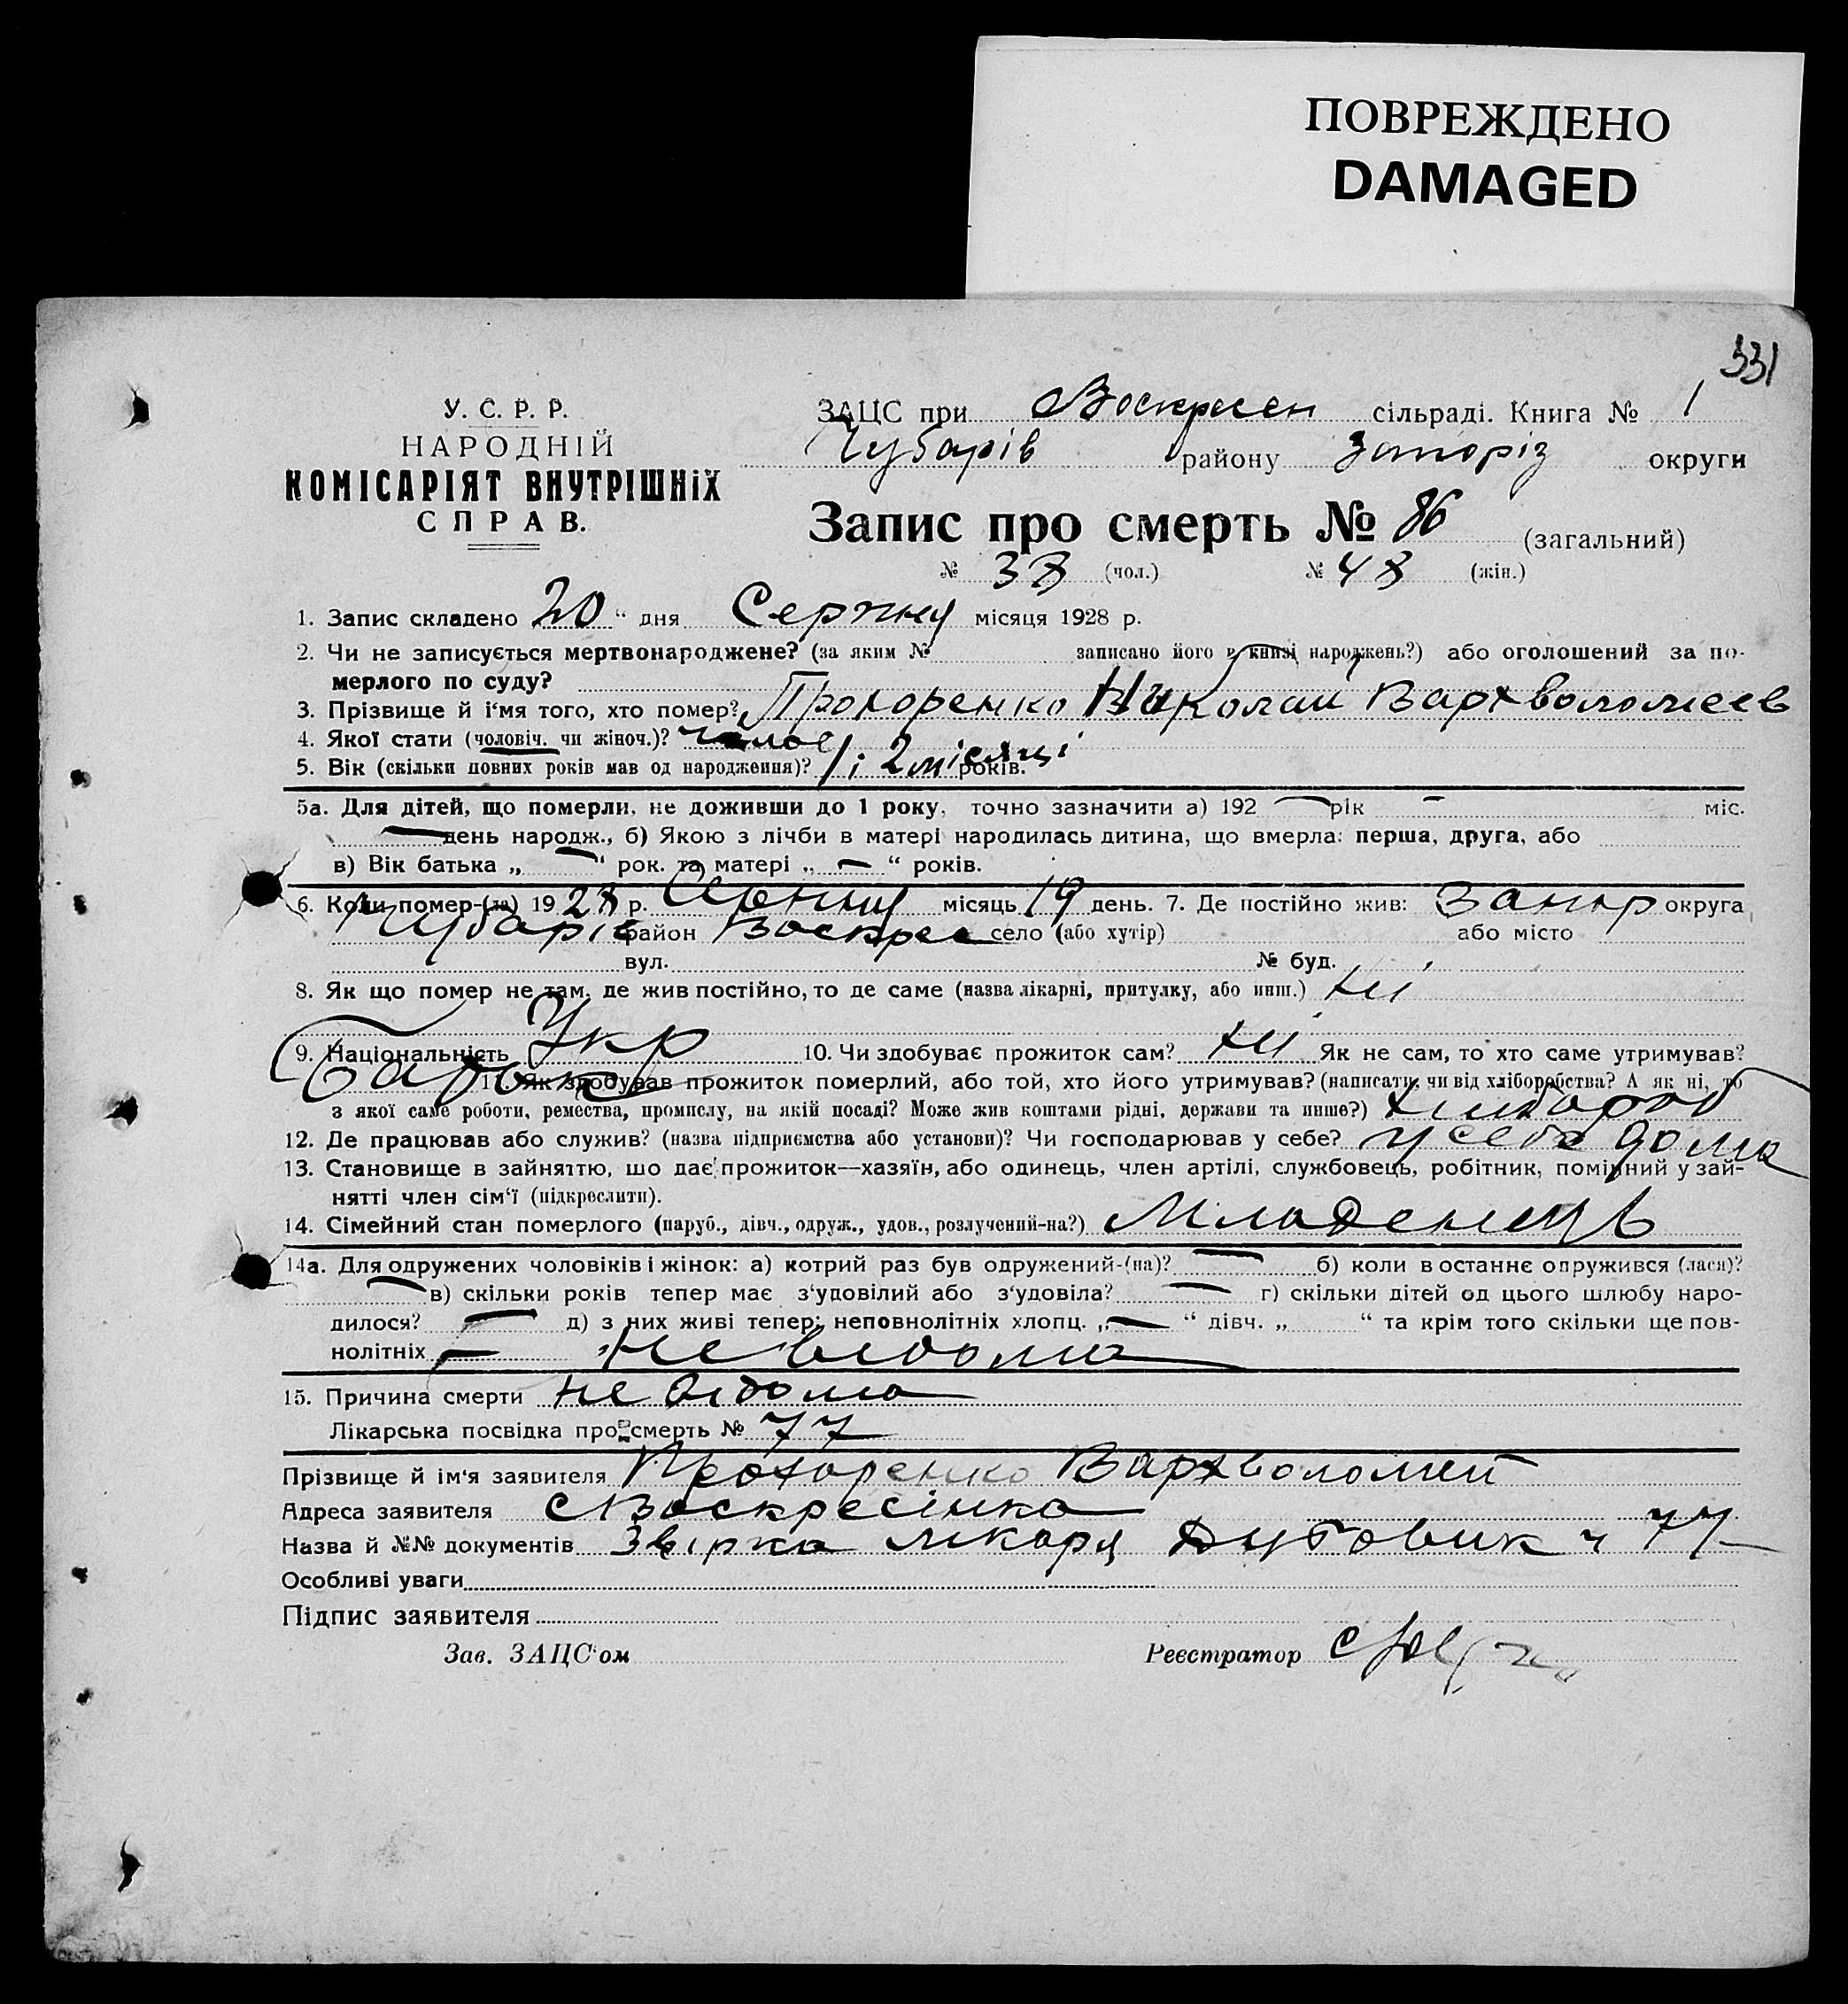 ПОВРЕЖДЕНО
DAMAGED
331
У. С. Р. Р.
НАРОДНІЙ
КОМІСАРІЯТ ВНУТРІШНІХ
СПРАВ.
ЗАЦС при Воскресен сільраді. Книга № 1
Чубарів району Запоріз округи
Запис про смерть № 86 (загальний)
№ 38 (чол.) № 48 (жін.)
1. Запис складено 20 “ дня Серпня місяця 1928 р.
2. Чи не записується мертвонароджене? (за яким № записано його в книзі народжень?) або оголошений за по-
мерлого по суду?
3. Прізвище й і‘мя того, хто помер? Прохоренко Николай Вархволомеев
4. Якої стати (чоловіч. чи жіноч.)?
5. Вік (скільки повних років мав од народження)? 1 і 2 місяці років.
5а. Для дітей, що померли, не доживши до 1 року, точно зазначити а) 192 — рік — міс.
— день народж., б) Якою з лічби в матері народилась дитина, що вмерла: перша, друга, або
в) Вік батька „ — “ рок. та матері „ — “ років.
6. Коли помер-(ла) 1928 р. Серпня місяць 19 день. 7. Де постійно жив: Запор округа
Чубарів район Воскрес село (або хутір) або місто
вул. № буд.
8. Як що помер не там, де жив постійно, то де саме (назва лікарні, притулку, або инш.) ні
9. Національність Укр 10. Чи здобуває прожиток сам? ні Як не сам, то хто саме утримував?
Батько 11. Як здобував прожиток померлий, або той, хто його утримував? (написати, чи від хліборобства? А як ні, то
з якої саме роботи, ремества, промислу, на якій посаді? Може жив коштами рідні, держави та инше?) хлібороб
12. Де працював або служив? (назва підприємства або установи)? Чи господарював у себе? у себе дома
13. Становище в зайняттю, що дає прожиток—хазяїн, або одинець, член артілі, службовець, робітник, помічний у зай-
нятті член сім‘ї (підкреслити).
14. Сімейний стан померлого (паруб., дівч., одруж., удов., розлучений-на?) Младенець
14а. Для одружених чоловіків і жінок: а) котрий раз був одружений-(на)? — б) коли в останнє одружився (лася)?
— в) скільки років тепер має з‘удовілий або з‘удовіла? — г) скільки дітей од цього шлюбу наро-
дилося? — д) з них живі тепер: неповнолітніх хлопц. „ — “ дівч. „ “ та крім того скільки ще пов-
нолітніх — невідома
15. Причина смерти не відома
Лікарська посвідка про смерть № 77
Прізвище й ім‘я заявителя Прохоренко Вархволомей
Адреса заявителя с Воскресінка
Назва й №№ документів лікаря 77
Особливі уваги
Підпис заявителя
Зав. ЗАЦС‘ом Реєстратор